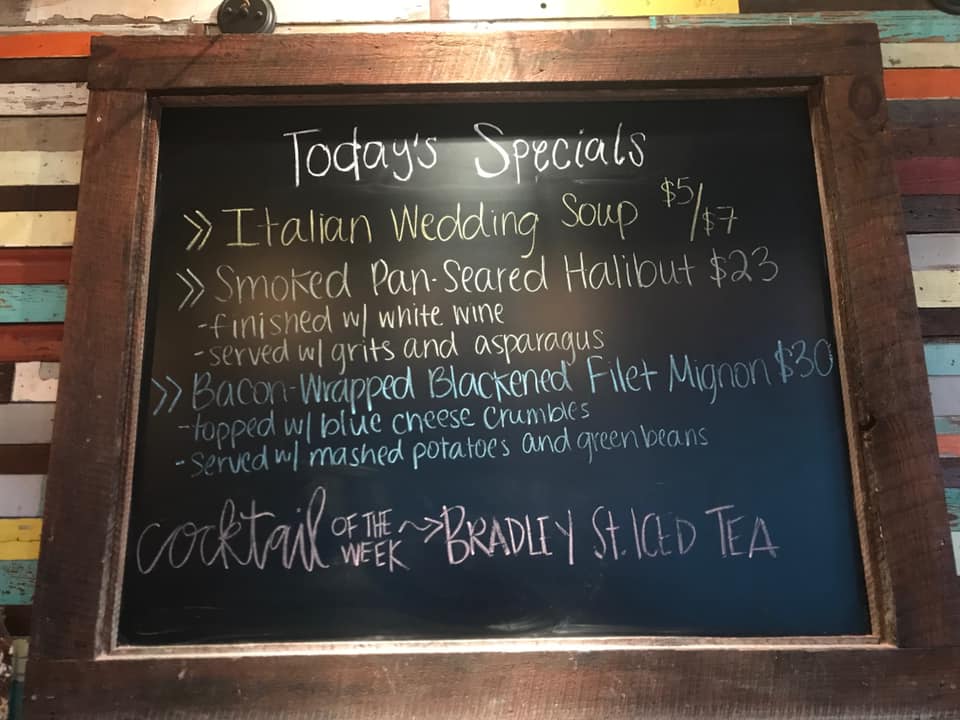 Today's Specials
» Italian Wedding Soup $5/$7
» Smoked Pan-Seared Halibut $23
-finished w/ white wine
-served w/ grits and asparagus
» Bacon-Wrapped Blackened Filet Mignon $30
-topped w/ blue cheese crumbles
-Served w/ mashed potatoes and green beans
cocktail OF THE WEEK ~> BRADLEY St. ICED TEA